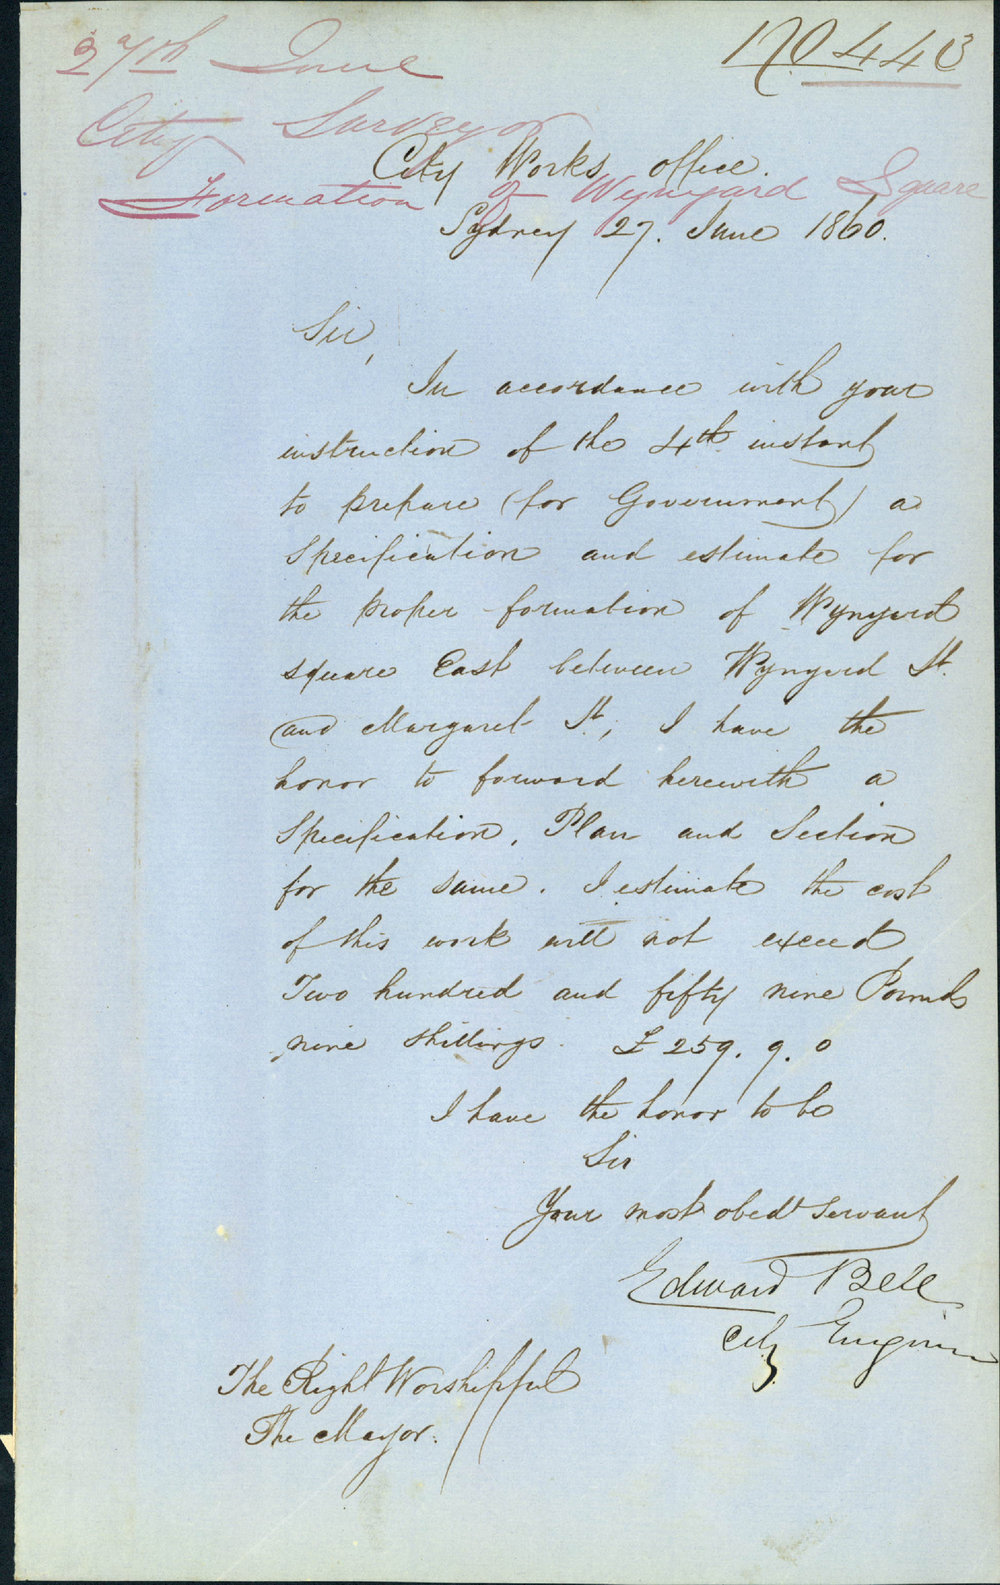 27th June
No 443
City Surveyor
City Works office.
Formation of Wynyard Square
Sydney 27. June 1860.
Sir,
In accordance with your
instruction of the 4th instant
to prepare (for Government) a
Specification and estimate for
the proper formation of Wynyard
square East between Wynyard St.
and Margaret St., I have the
honor to forward herewith a
Specification, Plan and Section
for the same. I estimate the cost
of this work will not exceed
Two hundred and fifty nine Pounds
nine shillings. £259. 9. 0
I have the honor to be
Sir
Your most obedt servant
Edward Bell
City Engineer
The Right Worshipful
The Mayor.